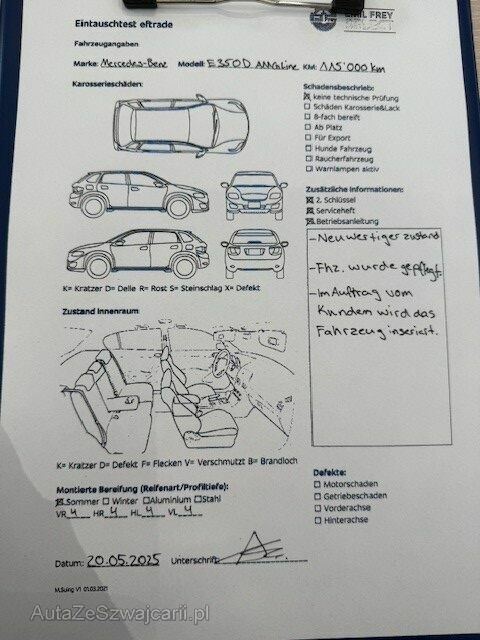 Eintauschtest eftrade
EMIL FREY
Fahrzeugangaben
Marke: Mercedes-Benz Modell: E350D AMGLine KM: 115'000 km
Karosserieschäden:
Schadensbeschrieb:
keine technische Prüfung
Schäden Karosserie&Lack
8-fach bereift
Ab Platz
Für Export
Hunde Fahrzeug
Raucherfahrzeug
Warnlampen aktiv
Zusätzliche Informationen:
2. Schlüssel
Serviceheft
Betriebsanleitung
- Neuwertiger zustand
- Fhz. wurde gepflegt.
- Im Auftrag vom
Kunden wird das
Fahrzeug inseriert.
K= Kratzer D= Delle R= Rost S= Steinschlag X= Defekt
Zustand Innenraum:
K= Kratzer D= Defekt F= Flecken V= Verschmutzt B= Brandloch
Montierte Bereifung (Reifenart/Profiltiefe):
Sommer Winter Aluminium Stahl
VR 4 HR 4 HL 4 VL 4
Defekte:
Motorschaden
Getriebeschaden
Vorderachse
Hinterachse
Datum: 20.05.2025 Unterschrift:
M.Suing V1 01.03.2021
AutaZeSzwajcarii.pl